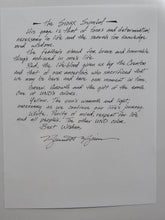 The Sioux Symbol
His gaze is that of vision and determination,
necessary to life and the search for knowledge
and wisdom.
The feathers stand for brave and honorable
things achieved in one's life.
Red, the life-blood given us by the Creator
and that of our ancestors who sacrificed that
we may be here and have our moment in time.
Green, growth and the gift of the earth
Yellow, the sun's warmth and light,
necessary as we continue our life's journey.
White, Purity of mind, respect for life
and all peoples.
Best Wishes,